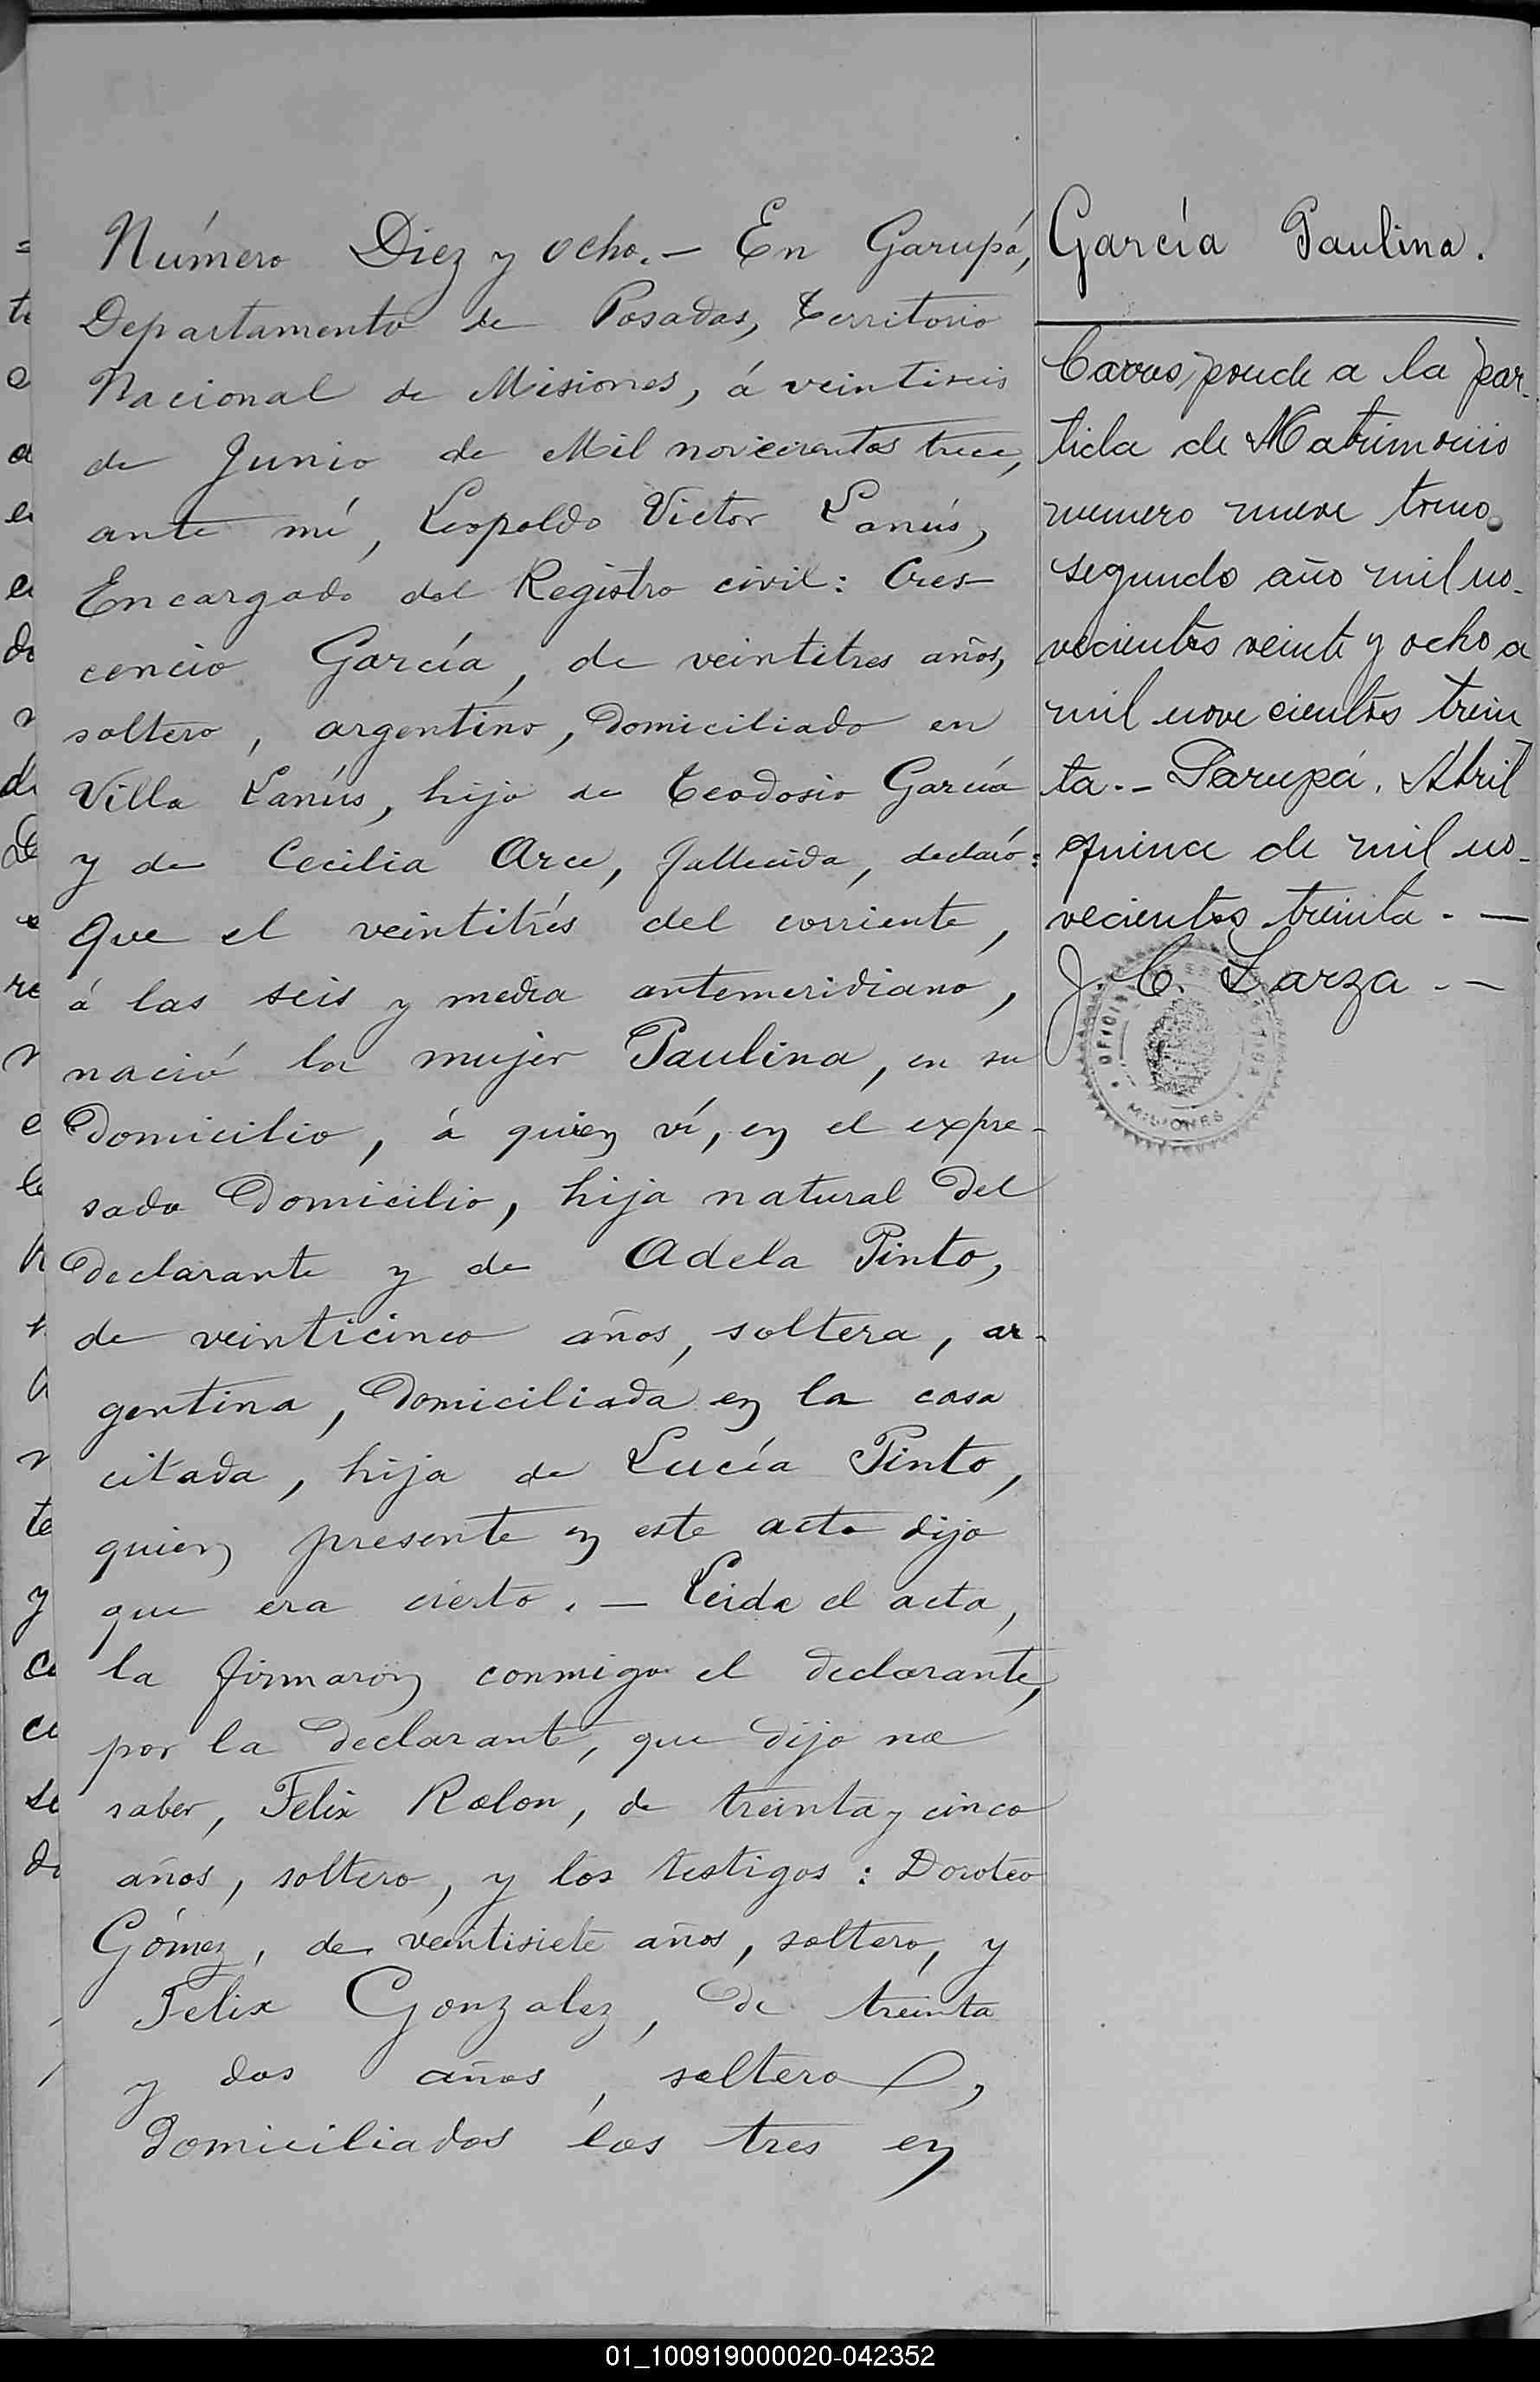 Número Diez y ocho.— En Garupá,
Departamento de Posadas, Territorio
Nacional de Misiones, á veintiseis
de Junio de Mil novecientos trece,
ante mí, Leopoldo Victor Lanús,
Encargado del Registro civil: Cres-
cencio García, de veintitres años,
soltero, argentino, domiciliado en
Villa Lanús, hijo de Teodosio García
y de Cecilia Arce, fallecida, declaró:
Que el veintitrés del corriente,
á las seis y media antemeridiano,
nació la mujer Paulina, en su
domicilio, á quien ví, en el expre-
sado domicilio, hija natural del
declarante y de Adela Pinto,
de veinticinco años, soltera, ar-
gentina, domiciliada en la casa
citada, hija de Lucía Pinto,
quien presente en este acto dijo
que era cierto.— Leida el acta,
la firmaron conmigo el declarante,
por la declarante, que dijo no
saber, Felix Rolon, de treinta y cinco
años, soltero, y los testigos: Doroteo
Gómez, de veintisiete años, soltero, y
Felix Gonzalez, de treinta
y dos años, soltero,
domiciliados los tres en
García Paulina.
Corresponde a la par-
tida de Matrimonio
numero nueve tomo
segundo año mil no-
vecientos veinte y ocho a
mil novecientos trein
ta.- Garupá, Abril
quince de mil no-
vecientos treinta.—
J. C. Larza.—
MISIONES
01_100919000020-042352